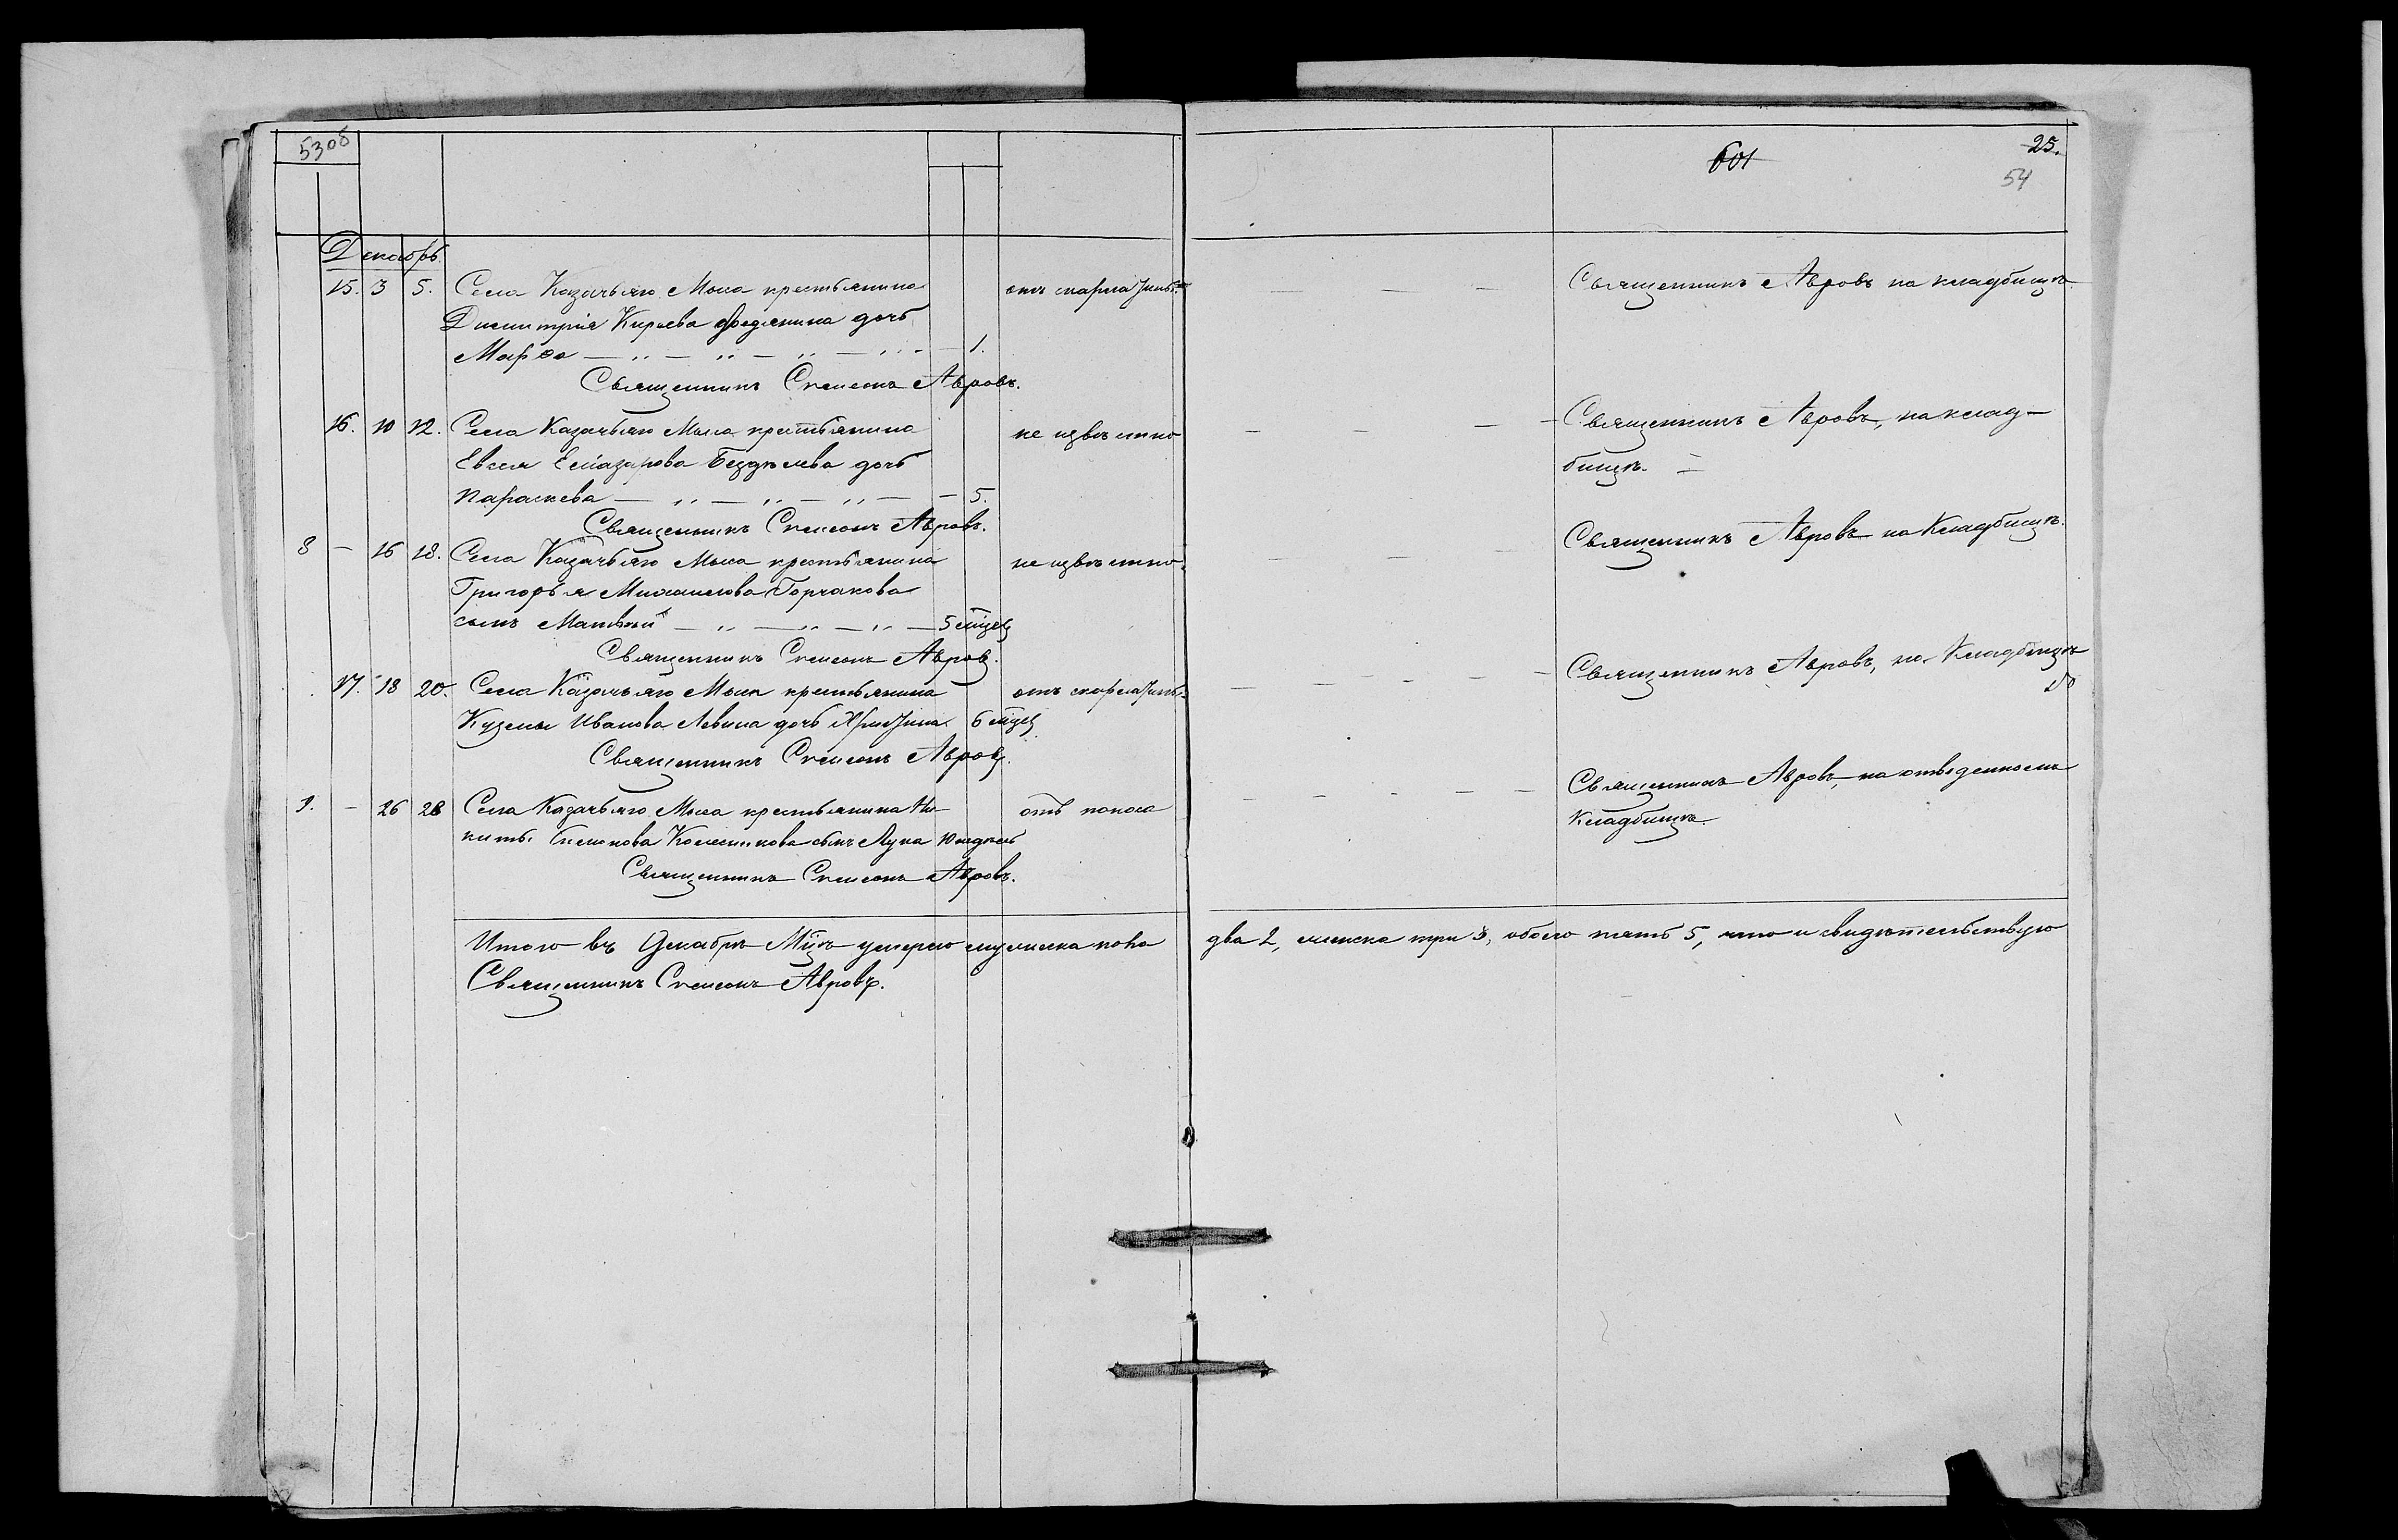 5305
601
25.
54
Декабрь.
15. 3 5. Села Казачьяго Мыса крестьянина отъ скарлатины Священникъ Авровъ на кладбищѣ.
Димитрія Кирѣева дочь
Марѳа — „ — „ — „ — „ — 1.
Священникъ Симеонъ Авровъ.
16. 10 12. Села Казачьяго Мыса крестьянина не извѣстно Священникъ Авровъ, на клад-
Евсея Елиазарова дочь бищѣ.
Параскева — „ — „ — „ — 5.
Священникъ Симеонъ Авровъ.
8 — 16 18. Села Казачьяго Мыса крестьянина не извѣстно. Священникъ Авровъ на Кладбищѣ.
Григорья Михаилова Горчакова
сынъ Матвѣй — „ — „ — „ — 5 мѣсяц
Священникъ Симеонъ Авровъ.
17. 18 20. Села Казачьяго Мыса крестьянина отъ скарлатины Священникъ Авровъ, на Кладбищѣ
Кузьмы Иванова Левина дочь Христина 6 мѣсяц
Священникъ Симеонъ Авровъ.
9. — 26 28 Села Казачьяго Мыса крестьянина Ни- отъ поноса Священникъ Авровъ, на отведенномъ
киты Колесникова сынъ Лука 10 недѣль Кладбищѣ.
Священникъ Симеонъ Авровъ.
Итого въ Декабрѣ М-цѣ умерло мужеска пола два 2, женска три 3, обоего пять 5, что и свидѣтельствую
Священникъ Симеонъ Авровъ.